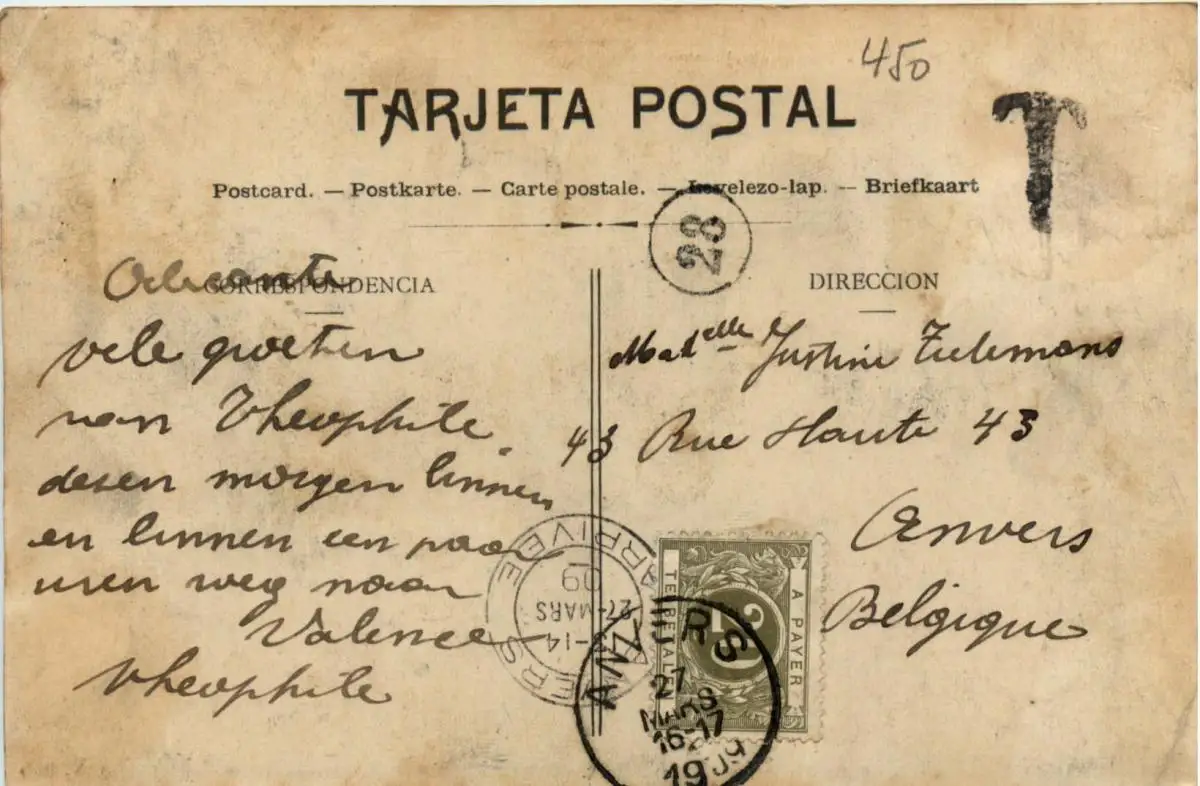 450
TARJETA POSTAL
T
Postcard. — Postkarte. — Carte postale. — Levelezo-lap. — Briefkaart
28
CORRESPONDENCIA
vele groeten
van Theophile
desen morgen binnen
en binnen een paar
uren weg naar
Valence
Theophile
DIRECCION
Madelle Justine Tielemans
43 Rue Haute 43
Anvers
Belgique
A PAYER
TE BETALEN
ARRIVE
27-MARS
09
ANVERS
27
MARS
16-17
1909